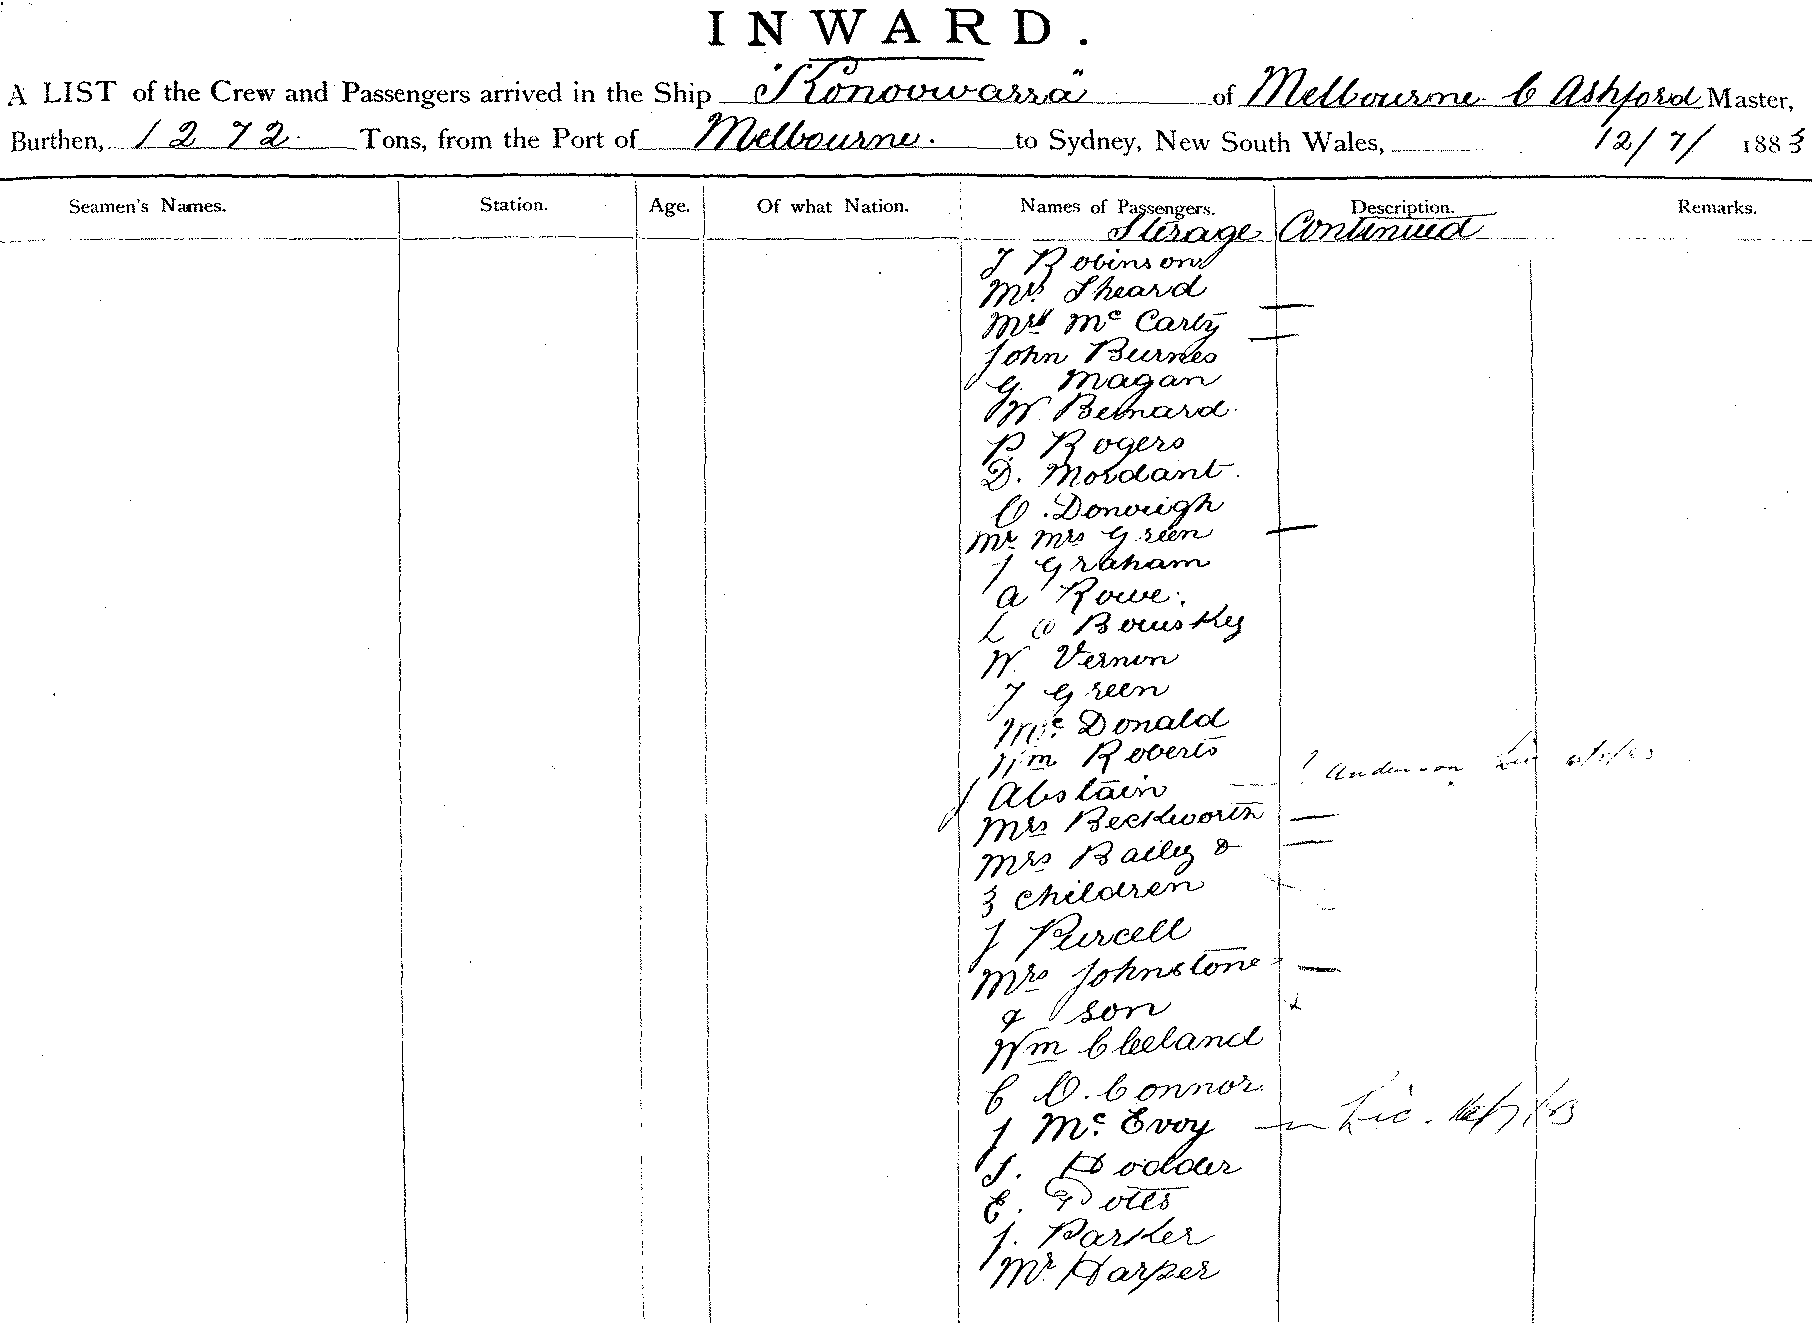 INWARD.
A LIST of the Crew and Passengers arrived in the Ship "Konoowarra" of Melbourne C Ashford Master,
Burthen, 1272 Tons, from the Port of Melbourne. to Sydney, New South Wales, 12/7/ 1883
Seamen's Names. Station. Age. Of what Nation. Names of Passengers. Description. Remarks.
Sterage Continued
J Robinson
Mrs Sheard
Mrs Mc Carty
John Burnes
G. Magan
W. Bernard.
P. Rogers
D. Mordant.
O. Donough
Mr. Mrs Green
J Graham
A Rowe.
L O Bouskey
W. Vernon
J Green
Mc. Donald
Wm Roberts
J Abstain ? Anderson
Mrs Beckworth
Mrs Bailey &
3 children
J Purcell
Mrs Johnstone
& son
Wm Cleeland
C O. Connor
J Mc. Evoy Lic.
S. Hodder
E. Potts
J. Parker
Mr. Harper